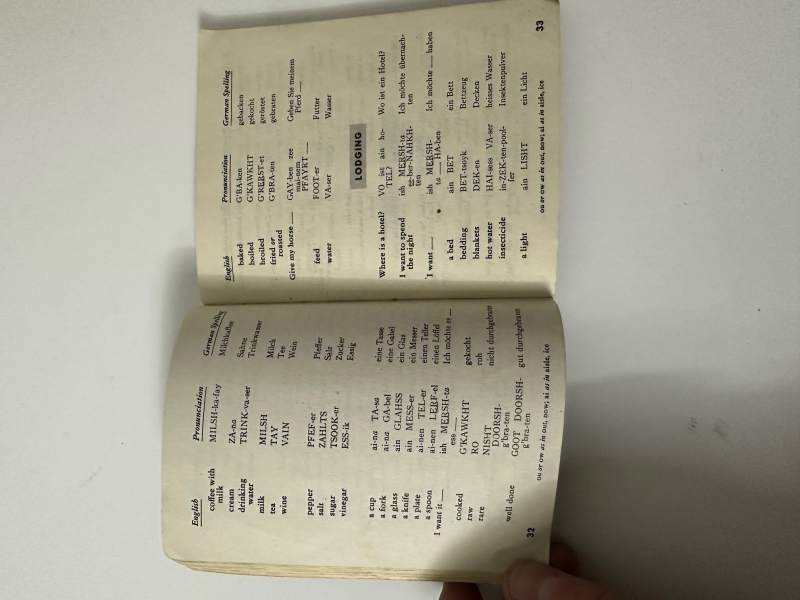 English Pronunciation German Spelling
coffee with milk MILSH-ka-fay Milchkaffee
cream ZA-na Sahne
drinking water TRINK-va-ser Trinkwasser
milk MILSH Milch
tea TAY Tee
wine VAIN Wein
pepper PFEF-er Pfeffer
salt ZAHLTS Salz
sugar TSOOK-er Zucker
vinegar ESS-ik Essig
a cup ai-na TA-sa eine Tasse
a fork ai-na GA-bel eine Gabel
a glass ain GLAHSS ein Glas
a knife ain MESS-er ein Messer
a plate ai-nen TEL-er einen Teller
a spoon ai-nen LERF-el einen Löffel
I want it ___ ish MERSH-ta ess ___ Ich möchte es ___
cooked G'KAWKHT gekocht
raw RO roh
rare NISHT DOORSH-g'bra-ten nicht durchgebraten
well done GOOT DOORSH-g'bra-ten gut durchgebraten
32 ou or ow as in out, now; ai as in aisle, ice
English Pronunciation German Spelling
baked G'BA-ken gebacken
boiled G'KAWKHT gekocht
broiled G'RERST-et geröstet
fried or roasted G'BRA-ten gebraten
Give my horse ___ GAY-ben zee mai-nem PFAYRT ___ Geben Sie meinem Pferd ___
feed FOOT-er Futter
water VA-ser Wasser
LODGING
Where is a hotel? VO ist ain ho-TEL? Wo ist ein Hotel?
I want to spend the night ish MERSH-ta ee-ber-NAHKH-ten Ich möchte übernachten
I want ___ ish MERSH-ta ___ HA-ben Ich möchte ___ haben
a bed ain BET ein Bett
bedding BET-tsoyk Bettzeug
blankets DEK-en Decken
hot water HAI-sess VA-ser heisses Wasser
insecticide in-ZEK-ten-pool-fer Insektenpulver
a light ain LISHT ein Licht
ou or ow as in out, now; ai as in aisle, ice 33